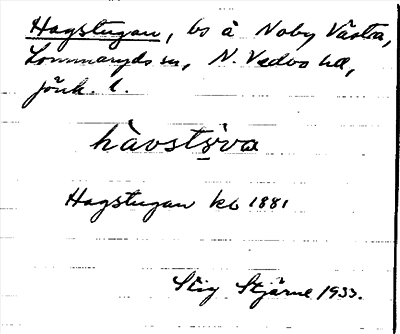 Hagstugan, bs å Noby Västra,
Lommaryds sn, N. Vedbo hd,
Jönk. l.
hàvsts̬va
Hagstugan kb 1881
Stig Stjärne 1933.